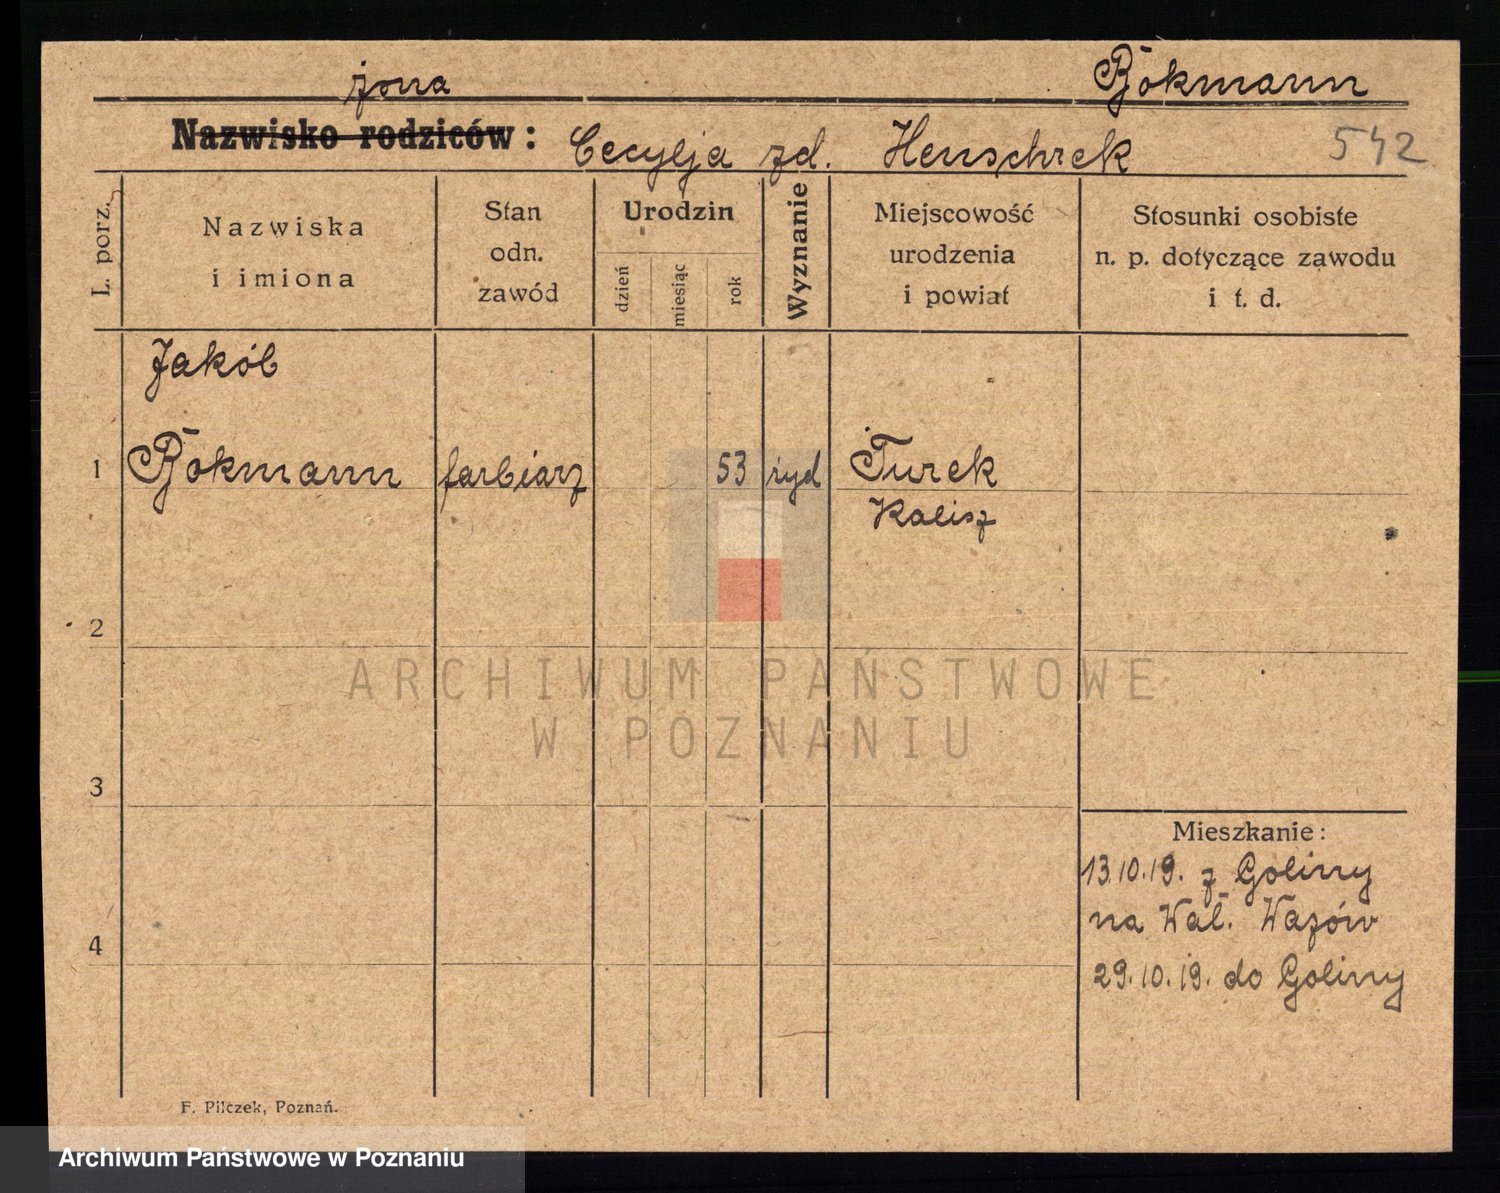 żona
Bökmann
Nazwisko rodziców: Cecylja zd. Henschrek 542
L. porz.
Nazwiska
i imiona
Stan
odn.
zawód
Urodzin
dzień
miesiąc
rok
Wyznanie
Miejscowość
urodzenia
i powiat
Stosunki osobiste
n. p. dotyczące zawodu
i t. d.
Jakób
1 Bökmann farbiarz 53 żyd Turek
Kalisz
2
ARCHIWUM PAŃSTWOWE
W POZNANIU
3
Mieszkanie:
13.10.19. z Goliny
na Wał. Wazów
4
29.10.19. do Goliny
F. Pilczek, Poznań.
Archiwum Państwowe w Poznaniu